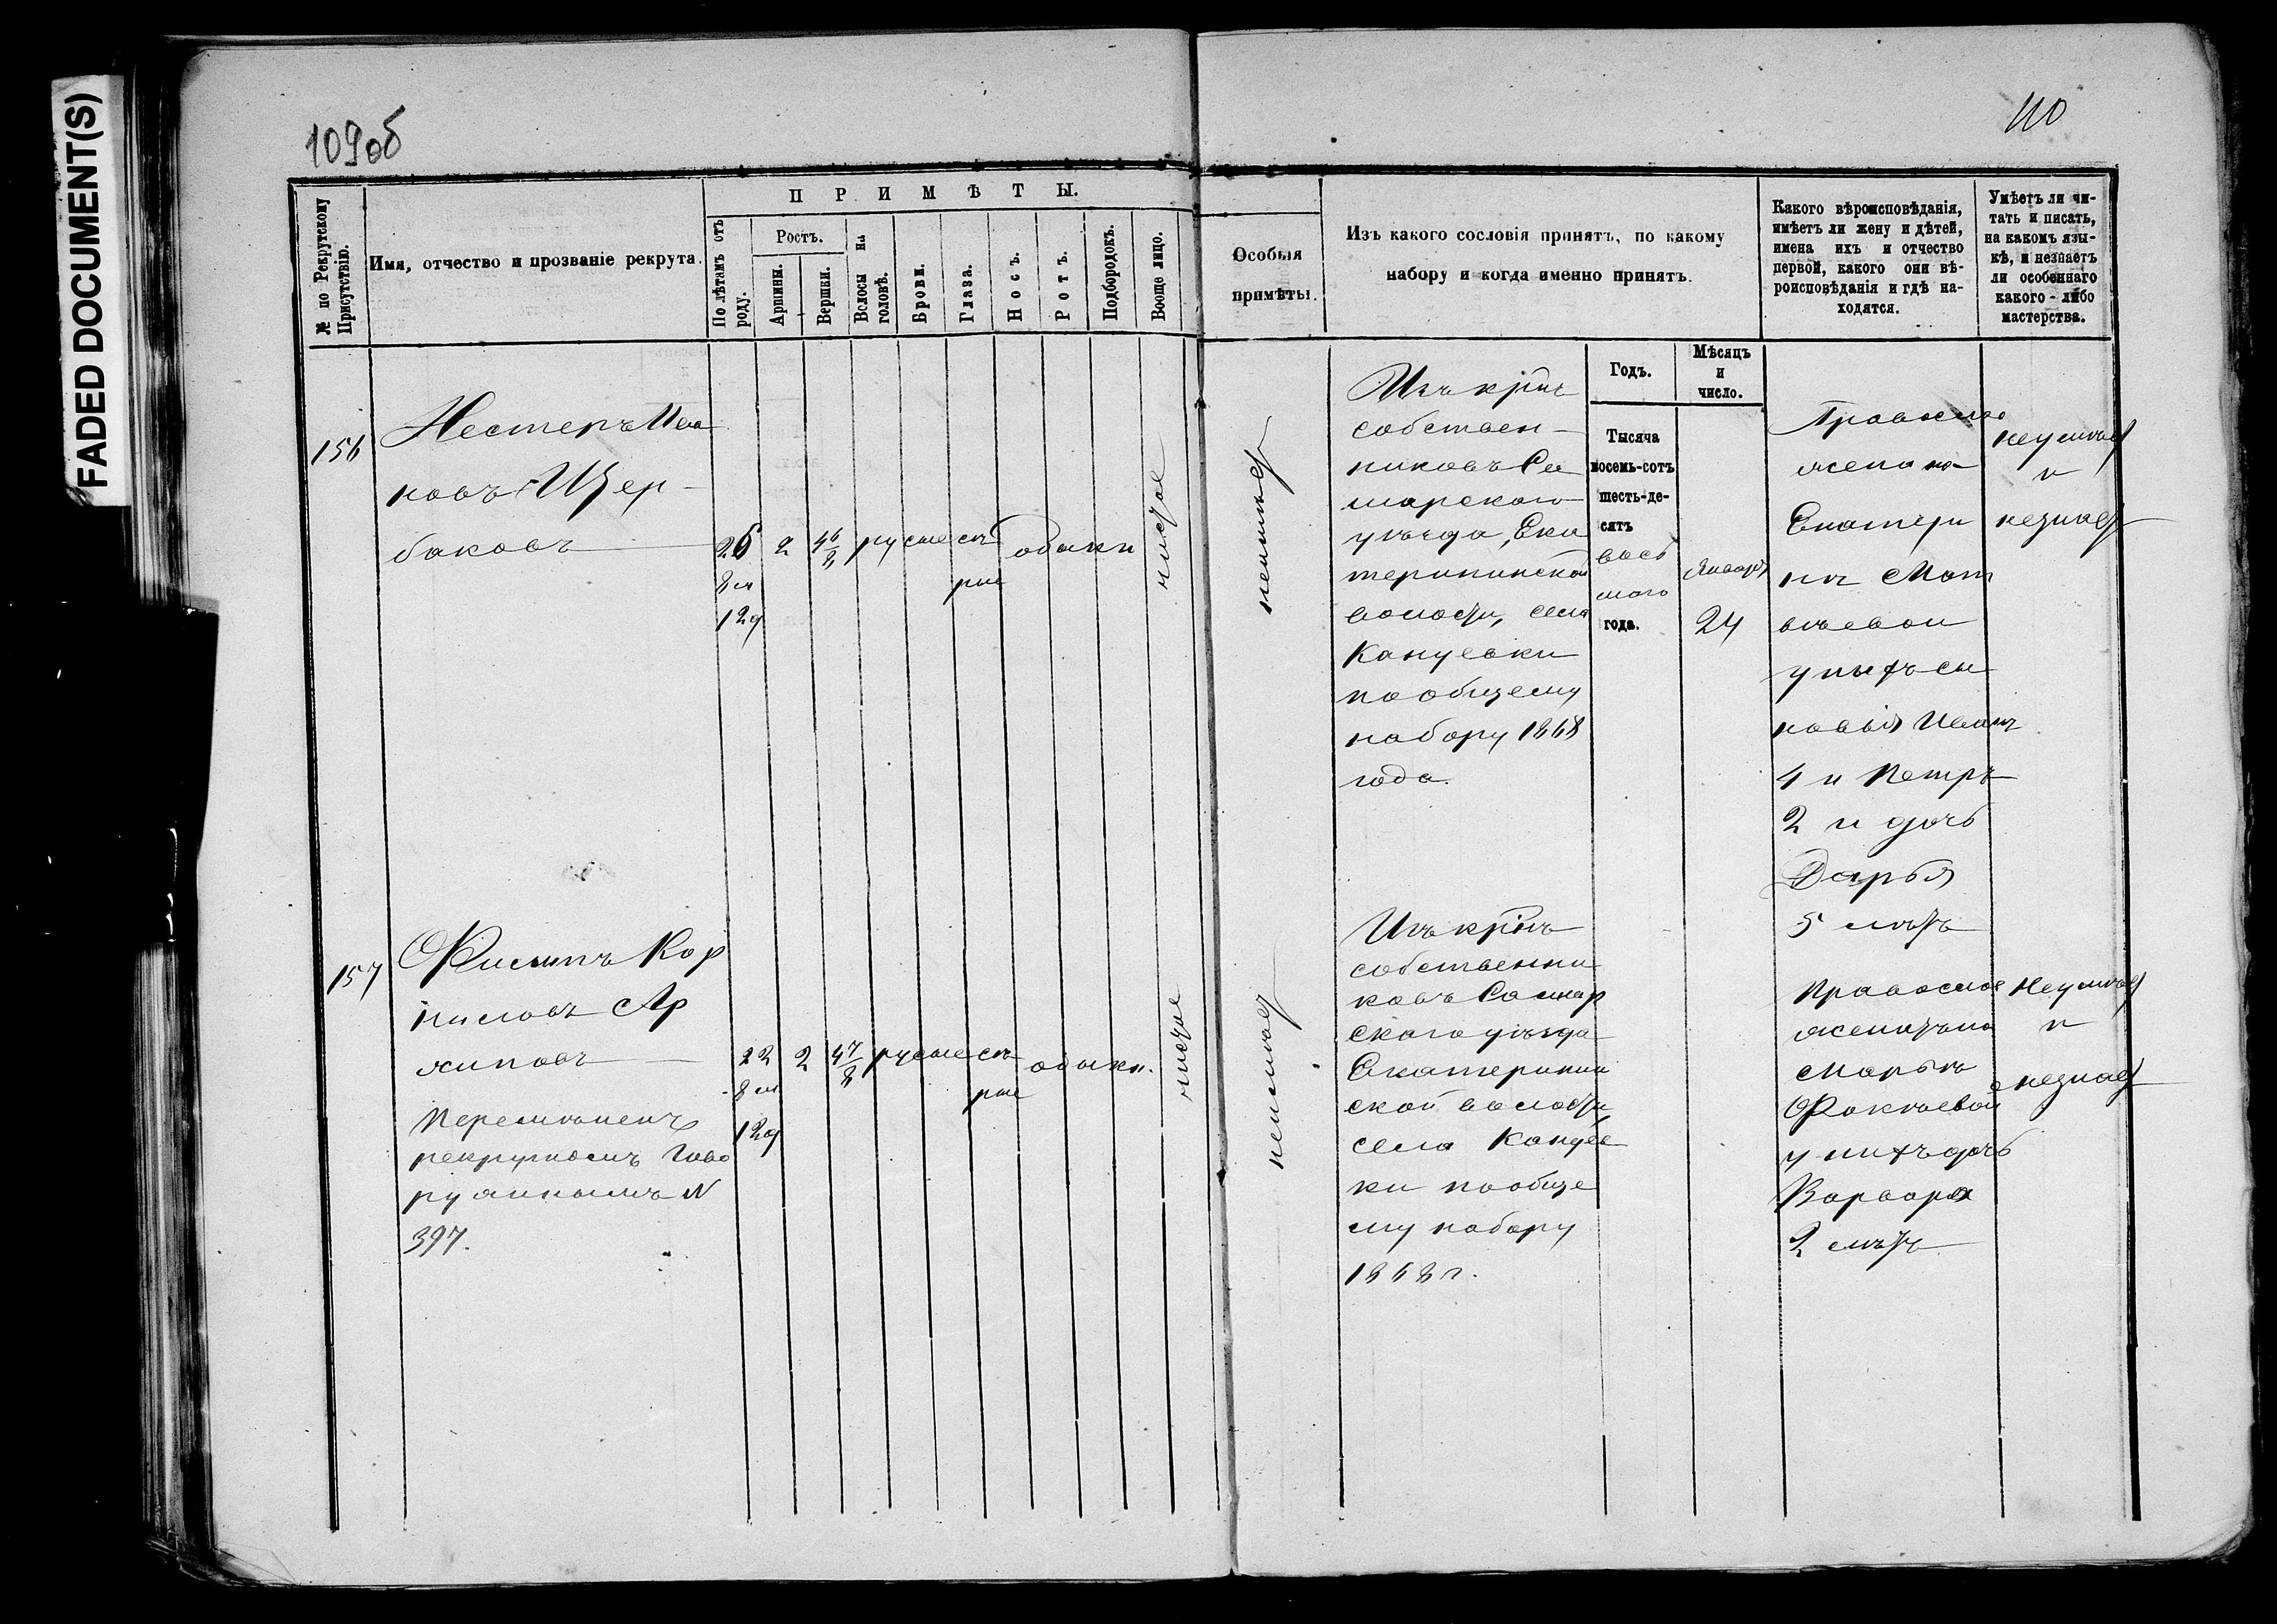 FADED DOCUMENT(S)
109об
110
№ по Рекрутскому Присутствію.
Имя, отчество и прозваніе рекрута.
ПРИМѢТЫ.
По лѣтамъ отъ роду.
Ростъ.
Аршины.
Вершки.
Волосы на головѣ.
Брови.
Глаза.
Носъ.
Ротъ.
Подбородокъ.
Вооще лицо.
Особыя
примѣты.
Изъ какого сословія принятъ, по какому
набору и когда именно принятъ.
Какого вѣроисповѣданія,
имѣетъ ли жену и дѣтей,
имена ихъ и отчество
первой, какого они вѣ-
роисповѣданія и гдѣ на-
ходятся.
Умѣетъ ли чи-
тать и писать,
на какомъ язы-
кѣ, и незнаетъ
ли особеннаго
какого-либо
мастерства.
Годъ.
Мѣсяцъ
и
число.
156
Нестеръ Ива
новъ Щер-
баковъ
26
8 м
12 д
2
4 6/8
русые
сѣ
рые
обыкн
чистое
неимѣет
Изъ крнъ
собствен-
никовъ Са
марскаго
уѣзда, Ека
терининской
волости, села
Кануевки
по общему
набору 1868
года.
Тысяча
восемь-сотъ
шесть-де-
сятъ
вось
маго
года.
Январ
24
Правосла
женатъ на
Екатери
нѣ Мат
вѣевой
у нихъ сы
новья Иванъ
4 и Петръ
2 и дочь
Дарья
5 лѣтъ
неумѣет
и
незнает
157
Филипъ Кор
ниловъ Ар
хиповъ
22
8 м
12 д
2
4 7/8
русые
сѣ
рые
обыкн.
чистое
неимѣет
Перемѣненъ
рекрутомъ Гово
рухинымъ N
397.
Изъ крнъ
собственни
ковъ Самар
скаго уѣзда
Екатеринин
ской волости
села Кануев
ки по обще
му набору
1868 г.
Православ
женатъ на
Марьѣ
Фокѣевой
у нихъ дочь
Варвара
2 лѣтъ
Неумѣет
и
незнает